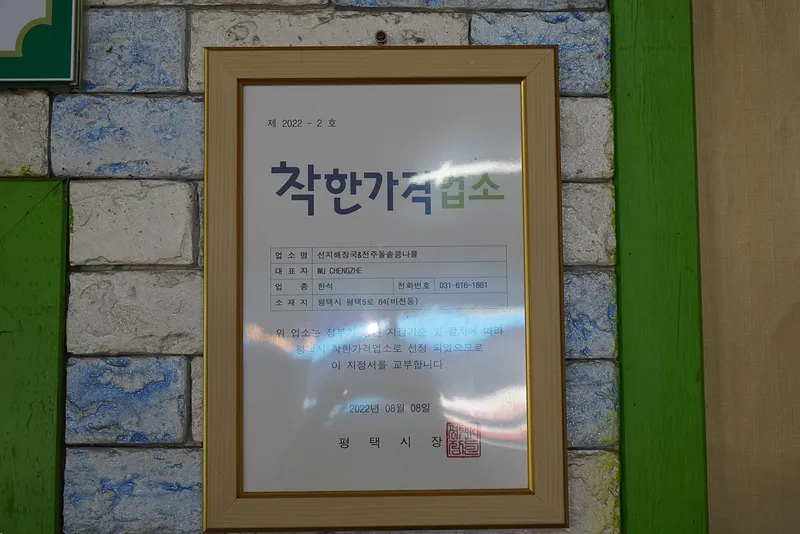 제 2022 - 2 호
착한가격업소
업 소 명 선지해장국&전주돌솥콩나물
대 표 자 WU CHENGZHE
업 종 한식 전화번호 031-616-1881
소 재 지 평택시 평택5로 84(비전동)
위 업소는 정부가 정한 지정기준 및 절차에 따라
평택시 착한가격업소로 선정 되었으므로
이 지정서를 교부합니다.
2022년 08월 08일
평 택 시 장